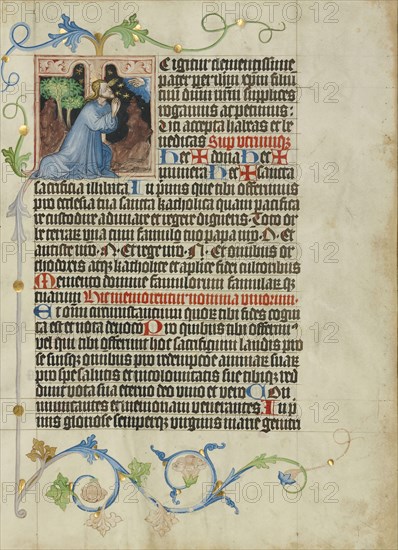 E igitur clementissime
pater per ihm xpm filiu
tuu dnm nrm supplices
rogamus ac petimus:
Uti accepta habeas et be
nedicas Sup utrumq
Hec ✠ dona Hec ✠
munera Hec ✠ sancta
sacrificia illibata In primis que tibi offerimus
pro ecclesia tua sancta katholica quam pacifica
re custodire adunare et regere digneris Toto or
be terrar una cum famulo tuo papa nro N Et
antistite nro N Et rege nro N Et omnibus or
thodoxis atq katholice et aplice fidei cultoribus
Memento domine famulorum famularuq
tuarum Hic memorentur nomina vivorum
Et omi circumstantium quor tibi fides cogni
ta est et nota devocio Pro quibus tibi offerim
vel qui tibi offerunt hoc sacrificium laudis pro
se suisq omnibus pro redempcione animar suar
pro spe salutis et incolomitatis sue tibiq red
dunt vota sua eterno deo vivo et vero Com
municantes et memoriam venerantes In p
mis gloriose semperq virginis marie genitri